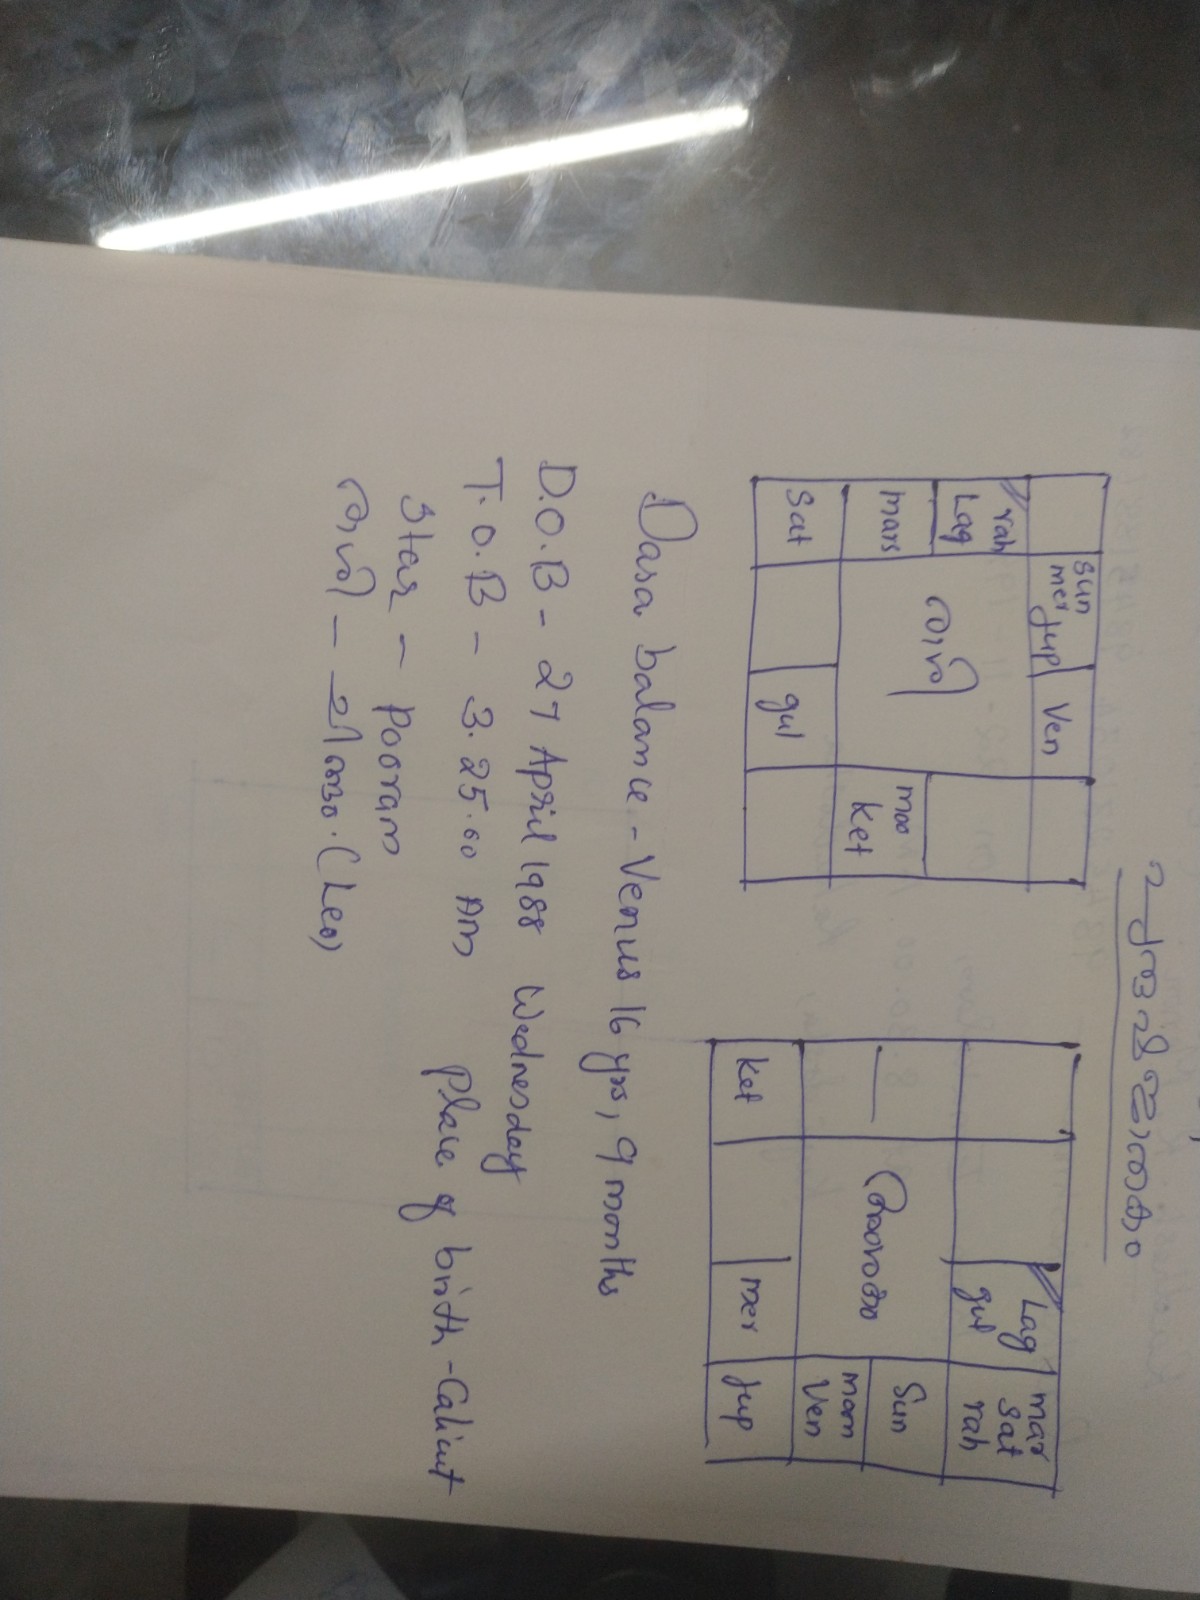 പുത്രജാതകം
Sun
mer Jup
Ven
rah
Lag
രാശി
mars
moo
Ket
Sat
gul
Lag
gul
mar
sat
rah
Sun
mom
Ven
Ket
mer
Jup
Dasa balance - Venus 16 yrs, 9 months
D.O.B - 27 April 1988 Wednesday
T.O.B - 3.25.00 Am Place of birth - Calicut
Star - Pooram
രാശി - ചിങ്ങം. (Leo)